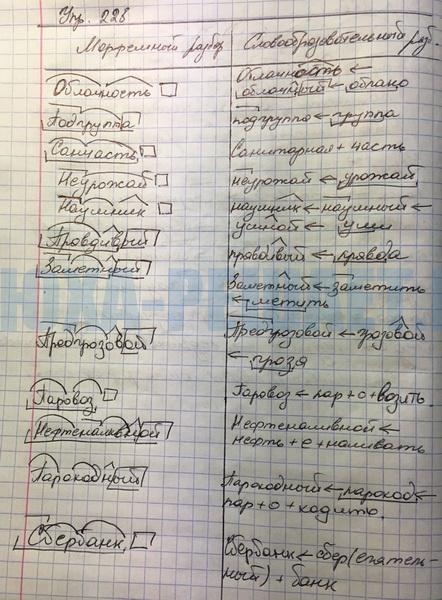 Упр. 228
Морфемный разбор Словообразовательный разб.
Облачность Облачность ←
облачный ← облако
Подгруппа подгруппа ← группа
Санчасть Санитарная + часть
Неурожай неурожай ← урожай
Наушник наушник ← наушный ←
ушной ← уши
Правдивый правдивый ← правда
Заметный Заметный ← заметить
← метить
Предгрозовой Предгрозовой ← грозовой
← гроза
Паровоз Паровоз ← пар + о + возить.
Нефтеналивной Нефтеналивной ←
нефть + е + наливать
Пароходный Пароходный ← пароход ←
пар + о + ходить.
Сбербанк Сбербанк ← сбер(егатель-
ный) + банк